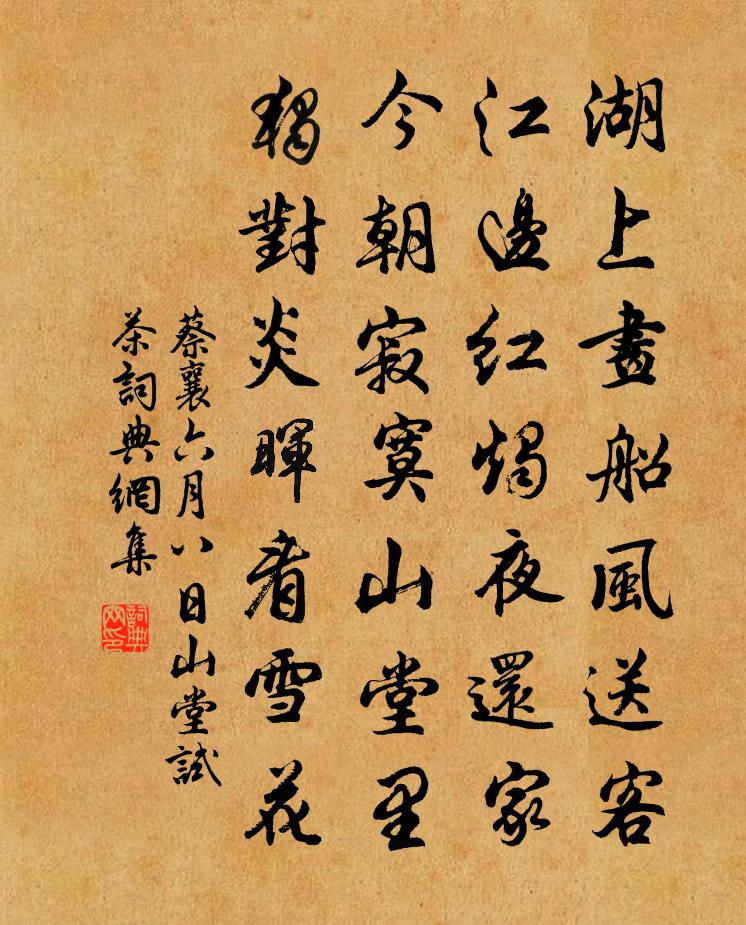 湖上畫船風送客
江邊紅燭夜還家
今朝寂寞山堂里
獨對炎暉看雪花
蔡襄六月八日山堂試
茶詞典網集
詞典
网印